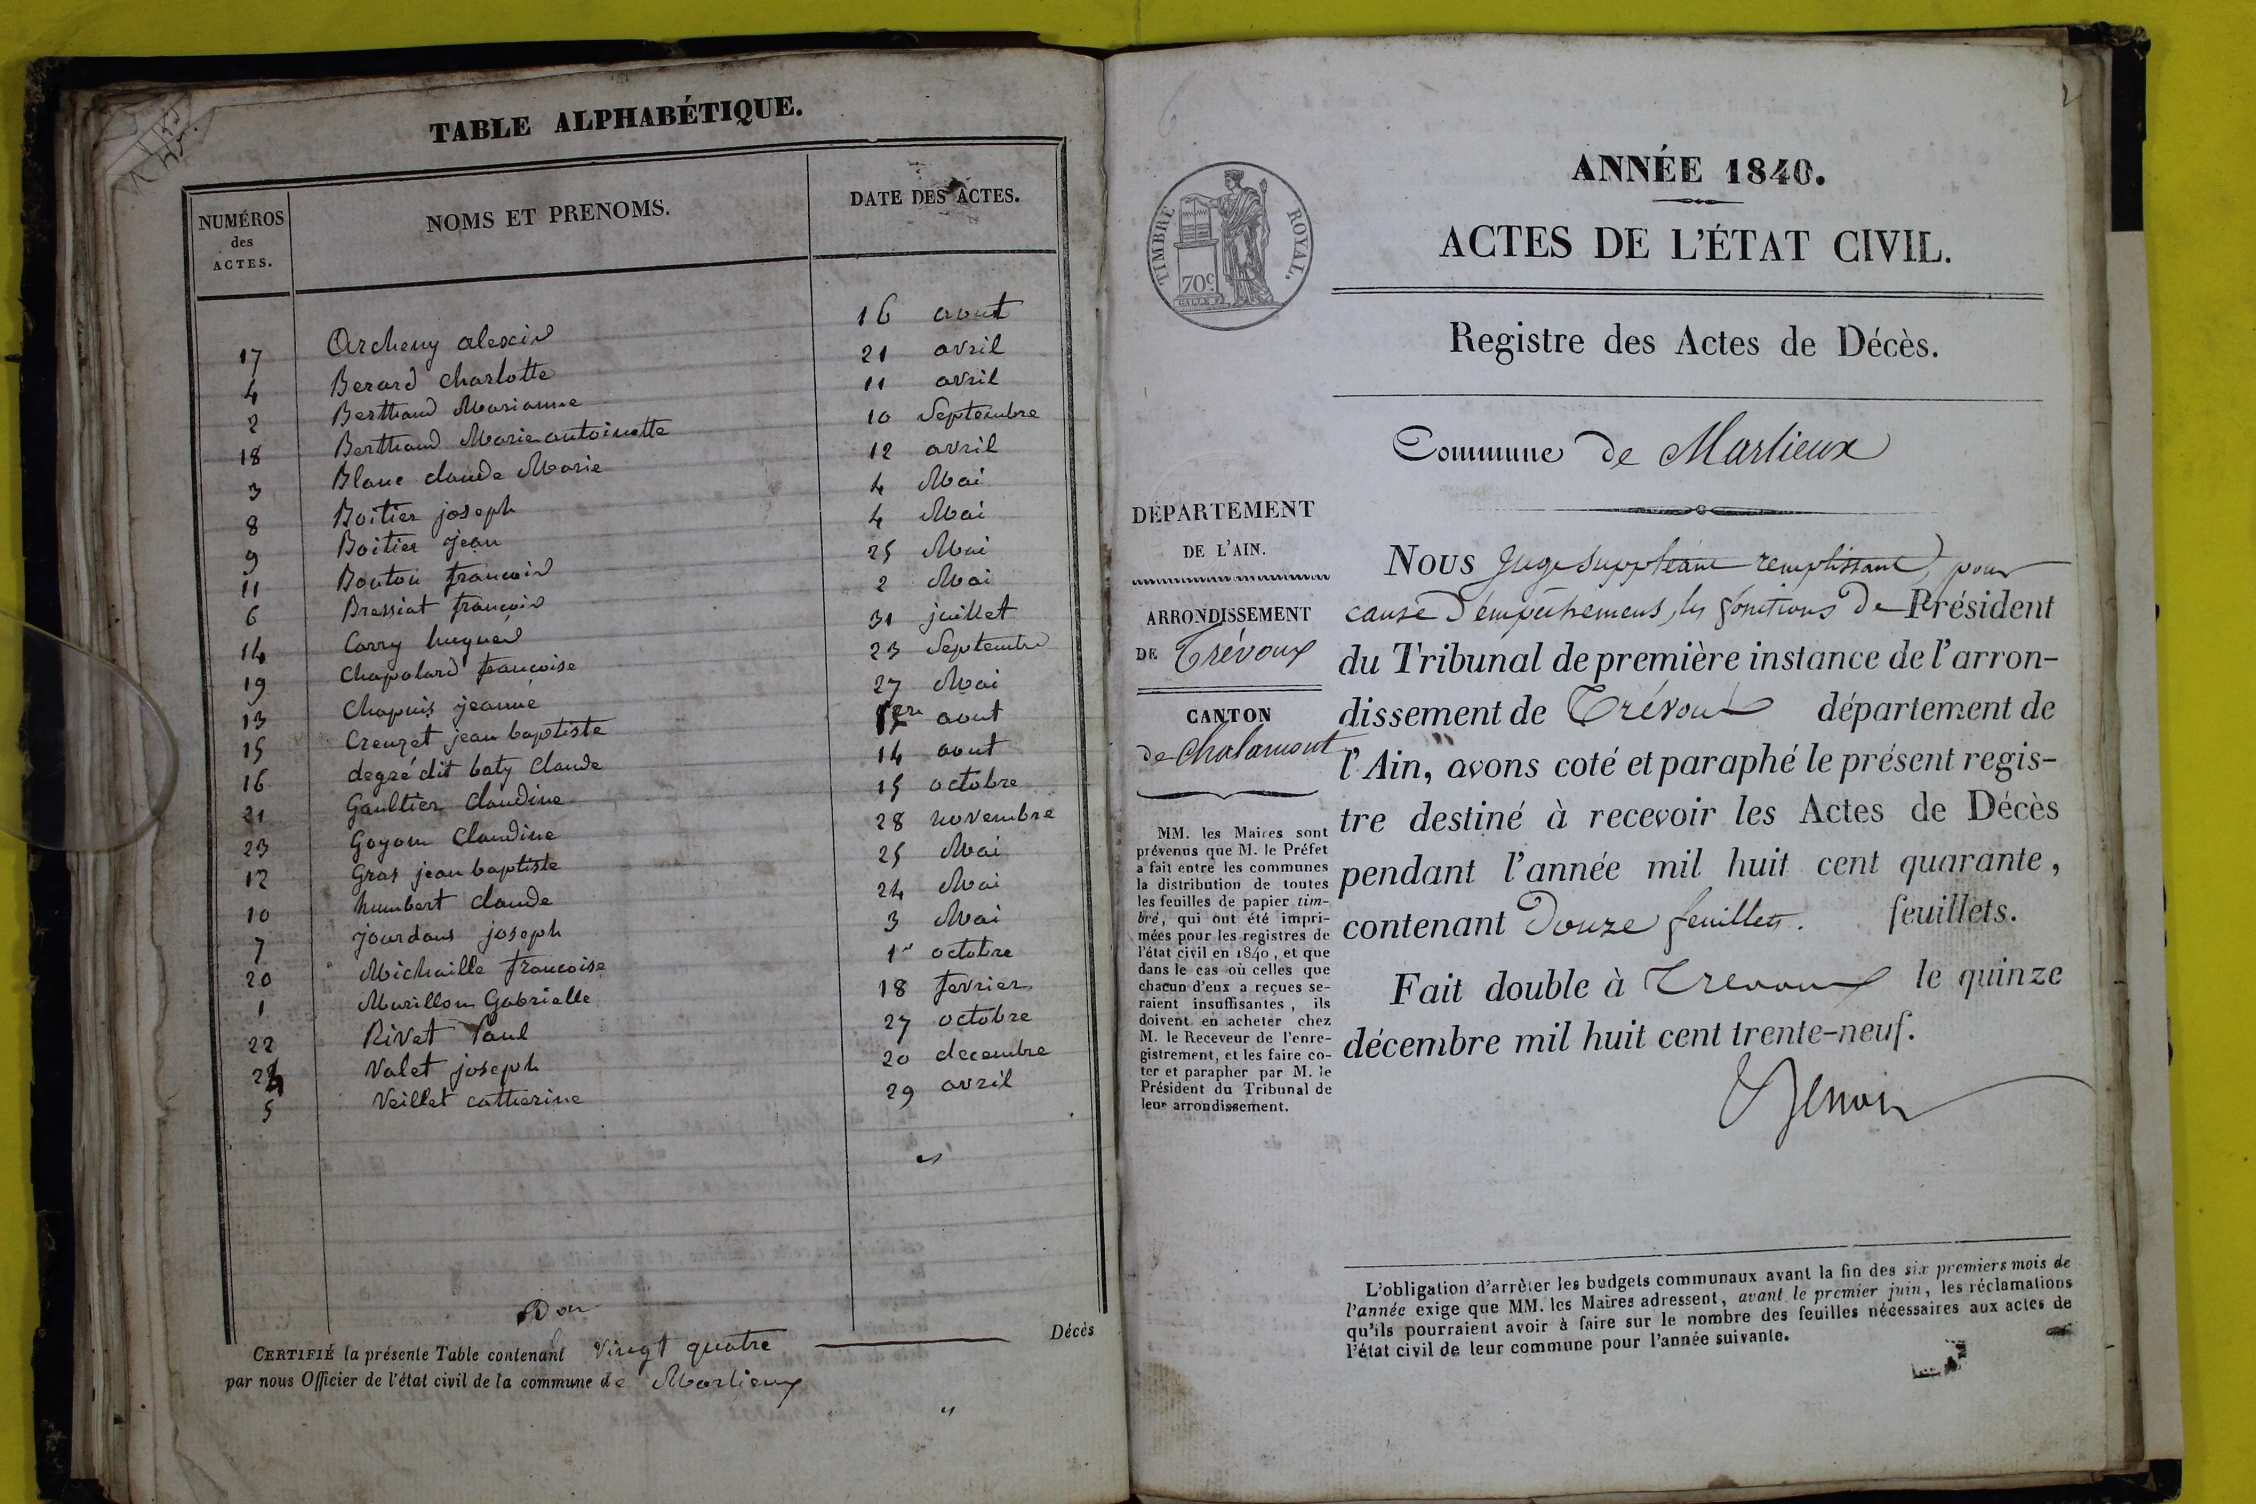 TABLE ALPHABÉTIQUE.
NUMÉROS des ACTES. NOMS ET PRENOMS. DATE DES ACTES.
17 Archeny alexis 16 aout
4 Berard charlotte 21 avril
2 Berthaud Marianne 11 avril
18 Berthaud Marie antoinette 10 Septembre
3 Blanc claude Marie 12 avril
8 Boitier joseph 4 Mai
9 Boitier jean 4 Mai
11 Bouton francois 25 Mai
6 Bressiat francois 2 Mai
14 Carry hugues 31 juillet
19 Chapolard francoise 23 Septembre
13 Chapuis jeanne 27 Mai
15 Creuzet jean baptiste 1er aout
16 degré dit baty Claude 14 aout
21 Gaultier Claudine 15 octobre
23 Goyon Claudine 28 novembre
12 Gras jean baptiste 25 Mai
10 humbert claude 24 Mai
7 jourdans joseph 3 Mai
20 Michaille francoise 1er octobre
1 Murillon Gabrielle 18 fevrier
22 Rivet Paul 27 octobre
24 Valet joseph 20 decembre
5 Veillet catherine 29 avril
CERTIFIÉ la présente Table contenant vingt quatre Décès
par nous Officier de l'état civil de la commune de Marlieux
TIMBRE ROYAL.
70c
ANNÉE 1840.
ACTES DE L'ÉTAT CIVIL.
Registre des Actes de Décès.
Commune de Marlieux
DÉPARTEMENT
DE L'AIN.
ARRONDISSEMENT
DE Trévoux
CANTON
de Chalamont
MM. les Maires sont
prévenus que M. le Préfet
a fait entre les communes
la distribution de toutes
les feuilles de papier tim-
bré, qui ont été impri-
mées pour les registres de
l'état civil en 1840, et que
dans le cas où celles que
chacun d'eux a reçues se-
raient insuffisantes, ils
doivent en acheter chez
M. le Receveur de l'enre-
gistrement, et les faire co-
ter et parapher par M. le
Président du Tribunal de
leur arrondissement.
NOUS Juge suppléant remplissant, pour
cause d'empêchemens, les fonctions de Président
du Tribunal de première instance de l'arron-
dissement de Trévoux département de
l'Ain, avons coté et paraphé le présent regis-
tre destiné à recevoir les Actes de Décès
pendant l'année mil huit cent quarante,
contenant Douze feuillets. feuillets.
Fait double à Trevoux le quinze
décembre mil huit cent trente-neuf.
L'obligation d'arrêter les budgets communaux avant la fin des six premiers mois de
l'année exige que MM. les Maires adressent, avant le premier juin, les réclamations
qu'ils pourraient avoir à faire sur le nombre des feuilles nécessaires aux actes de
l'état civil de leur commune pour l'année suivante.